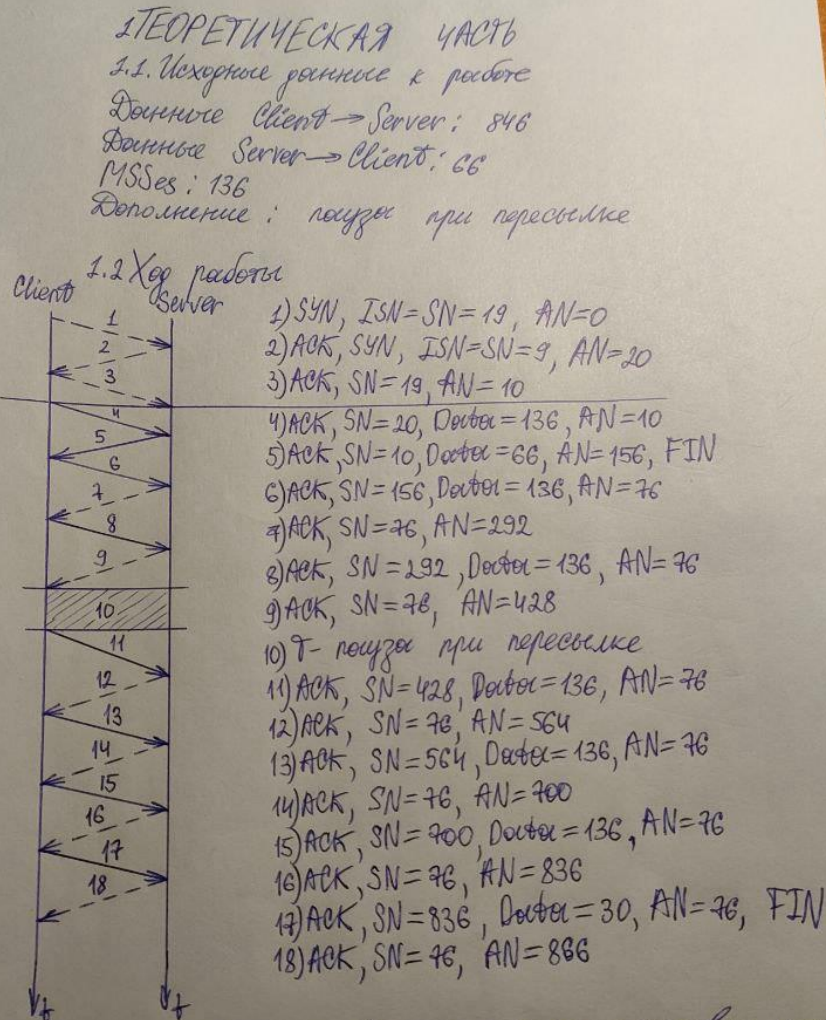 1 ТЕОРЕТИЧЕСКАЯ ЧАСТЬ
1.1. Исходные данные к работе
Данные Client → Server: 846
Данные Server → Client: 66
MSSes: 136
Дополнение: пауза при пересылке
1.2 Ход работы
Client Server
1
2
3
4
5
6
7
8
9
10
11
12
13
14
15
16
17
18
t t
1) SYN, ISN=SN=19, AN=0
2) ACK, SYN, ISN=SN=9, AN=20
3) ACK, SN=19, AN=10
4) ACK, SN=20, Data=136, AN=10
5) ACK, SN=10, Data=66, AN=156, FIN
6) ACK, SN=156, Data=136, AN=76
7) ACK, SN=76, AN=292
8) ACK, SN=292, Data=136, AN=76
9) ACK, SN=76, AN=428
10) T- пауза при пересылке
11) ACK, SN=428, Data=136, AN=76
12) ACK, SN=76, AN=564
13) ACK, SN=564, Data=136, AN=76
14) ACK, SN=76, AN=700
15) ACK, SN=700, Data=136, AN=76
16) ACK, SN=76, AN=836
17) ACK, SN=836, Data=30, AN=76, FIN
18) ACK, SN=76, AN=866